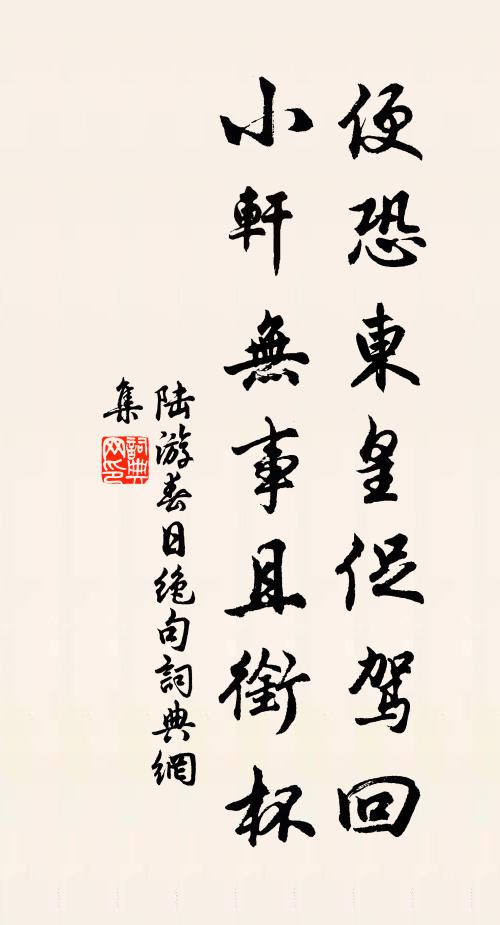 便恐東皇促駕回
小軒無事且銜杯
陸游春日絶句詞典網
集
詞典网印